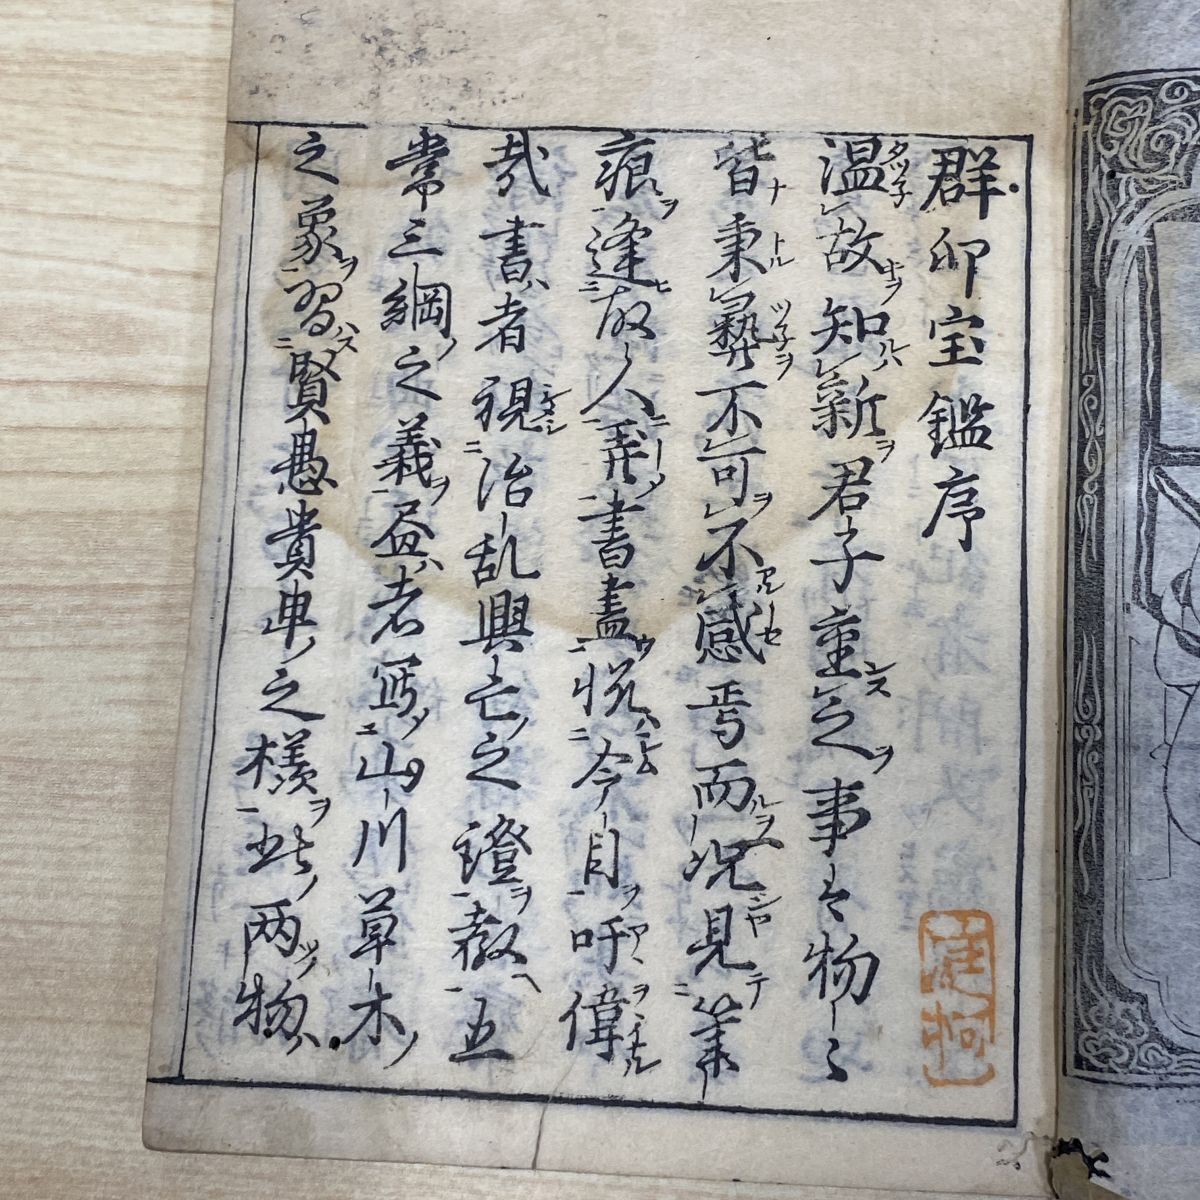 群印宝鑑序
温故知新君子重之事々物々
皆秉彝不可不感焉而况見筆
痕逢故人弄書畫悦今目吁偉
哉書者視治乱興亡之證教五
常三綱之義畫者写山川草木
之象習賢愚貴卑之様此两物